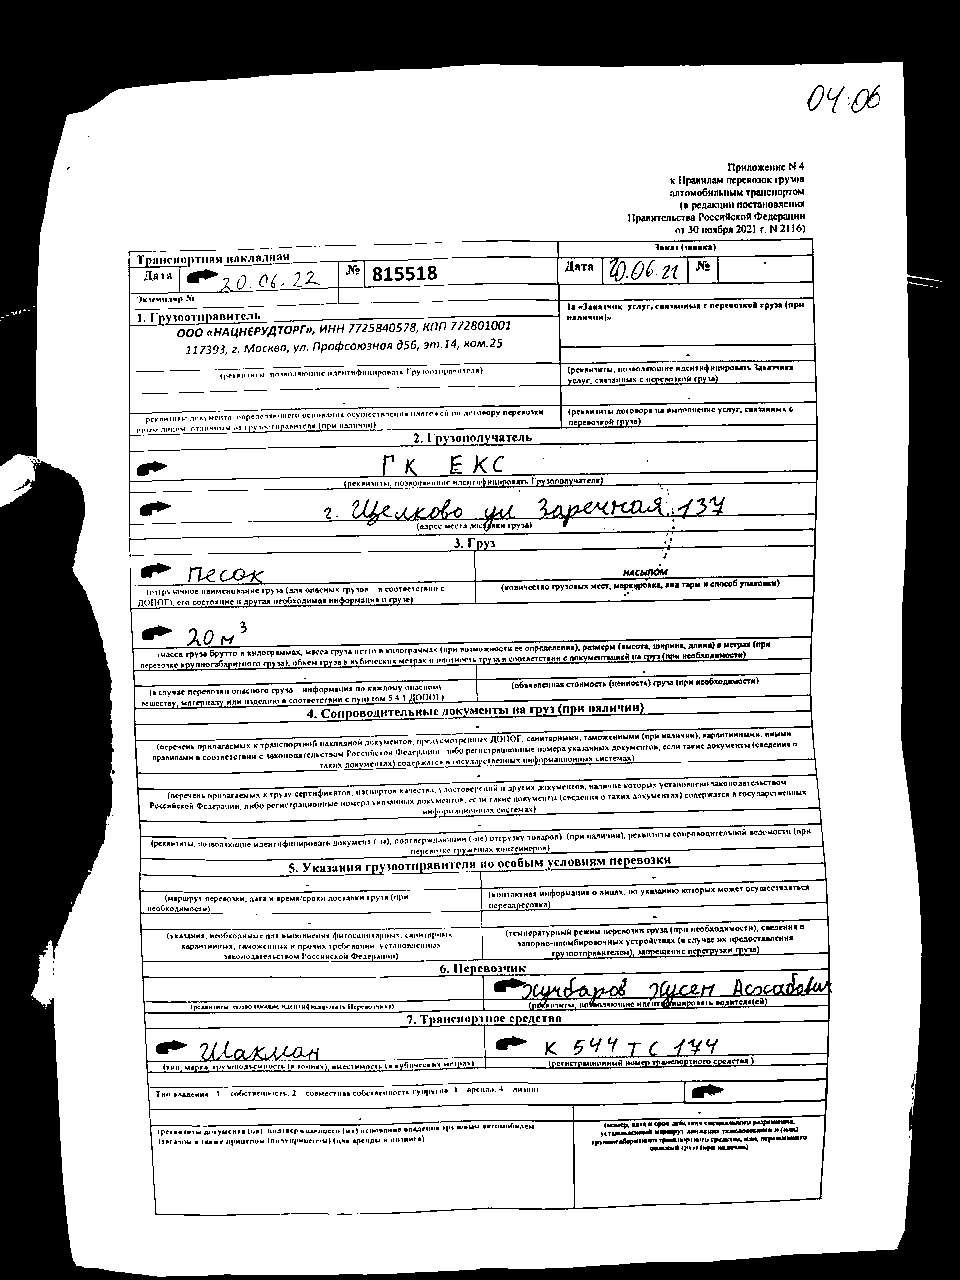 04:06
Приложение N 4
к Правилам перевозок грузов
автомобильным транспортом
(в редакции постановления
Правительства Российской Федерации
от 30 ноября 2021 г. N 2116)
Транспортная накладная
Заказ (заявка)
Дата 20.06.22 № 815518
Дата 20.06.22 №
Экземпляр №
1. Грузоотправитель
1а «Заказчик услуг, связанных с перевозкой груза (при
наличии)»
ООО «НАЦНЕРУДТОРГ», ИНН 7725840578, КПП 772801001
117393, г. Москва, ул. Профсоюзная д56, эт.14, ком.25
(реквизиты, позволяющие идентифицировать Грузоотправителя)
(реквизиты, позволяющие идентифицировать Заказчика
услуг, связанных с перевозкой груза)
реквизиты документа, определяющего основания осуществления платежей по договору перевозки
иным лицом, отличным от грузоотправителя (при наличии)
(реквизиты договора на выполнение услуг, связанных с
перевозкой груза)
2. Грузополучатель
ГК ЕКС
(реквизиты, позволяющие идентифицировать Грузополучателя)
г. Щелково ул Заречная 137
(адрес места доставки груза)
3. Груз
Песок
насыпом
(отгрузочное наименование груза (для опасных грузов - в соответствии с
ДОПОГ), его состояние и другая необходимая информация о грузе)
(количество грузовых мест, маркировка, вид тары и способ упаковки)
20 м³
(масса груза брутто в килограммах, масса груза нетто в килограммах (при возможности ее определения), размеры (высота, ширина, длина) в метрах (при
перевозке крупногабаритного груза), объем груза в кубических метрах и плотность груза в соответствии с документацией на груз (при необходимости)
(в случае перевозки опасного груза - информация по каждому опасному
веществу, материалу или изделию в соответствии с пунктом 5.4.1 ДОПОГ)
(объявленная стоимость (ценность) груза (при необходимости)
4. Сопроводительные документы на груз (при наличии)
(перечень прилагаемых к транспортной накладной документов, предусмотренных ДОПОГ, санитарными, таможенными (при наличии), карантинными, иными
правилами в соответствии с законодательством Российской Федерации, либо регистрационные номера указанных документов, если такие документы (сведения о
таких документах) содержатся в государственных информационных системах)
(перечень прилагаемых к грузу сертификатов, паспортов качества, удостоверений и других документов, наличие которых установлено законодательством
Российской Федерации, либо регистрационные номера указанных документов, если такие документы (сведения о таких документах) содержатся в государственных
информационных системах)
(реквизиты, позволяющие идентифицировать документ(-ы), подтверждающий(-ие) отгрузку товаров) (при наличии), реквизиты сопроводительной ведомости (при
перевозке груженых контейнеров)
5. Указания грузоотправителя по особым условиям перевозки
(маршрут перевозки, дата и время/сроки доставки груза (при
необходимости)
(контактная информация о лицах, по указанию которых может осуществляться
переадресовка)
(указания, необходимые для выполнения фитосанитарных, санитарных,
карантинных, таможенных и прочих требований, установленных
законодательством Российской Федерации)
(температурный режим перевозки груза (при необходимости), сведения о
запорно-пломбировочных устройствах (в случае их предоставления
грузоотправителем), запрещение перегрузки груза)
6. Перевозчик
(реквизиты, позволяющие идентифицировать Перевозчика)
(реквизиты, позволяющие идентифицировать водителя(ей)
7. Транспортное средство
Шакман
К 544 ТС 144
(тип, марка, грузоподъемность (в тоннах), вместимость (в кубических метрах)
(регистрационный номер транспортного средства)
Тип владения: 1 - собственность; 2 - совместная собственность супругов; 3 - аренда; 4 - лизинг